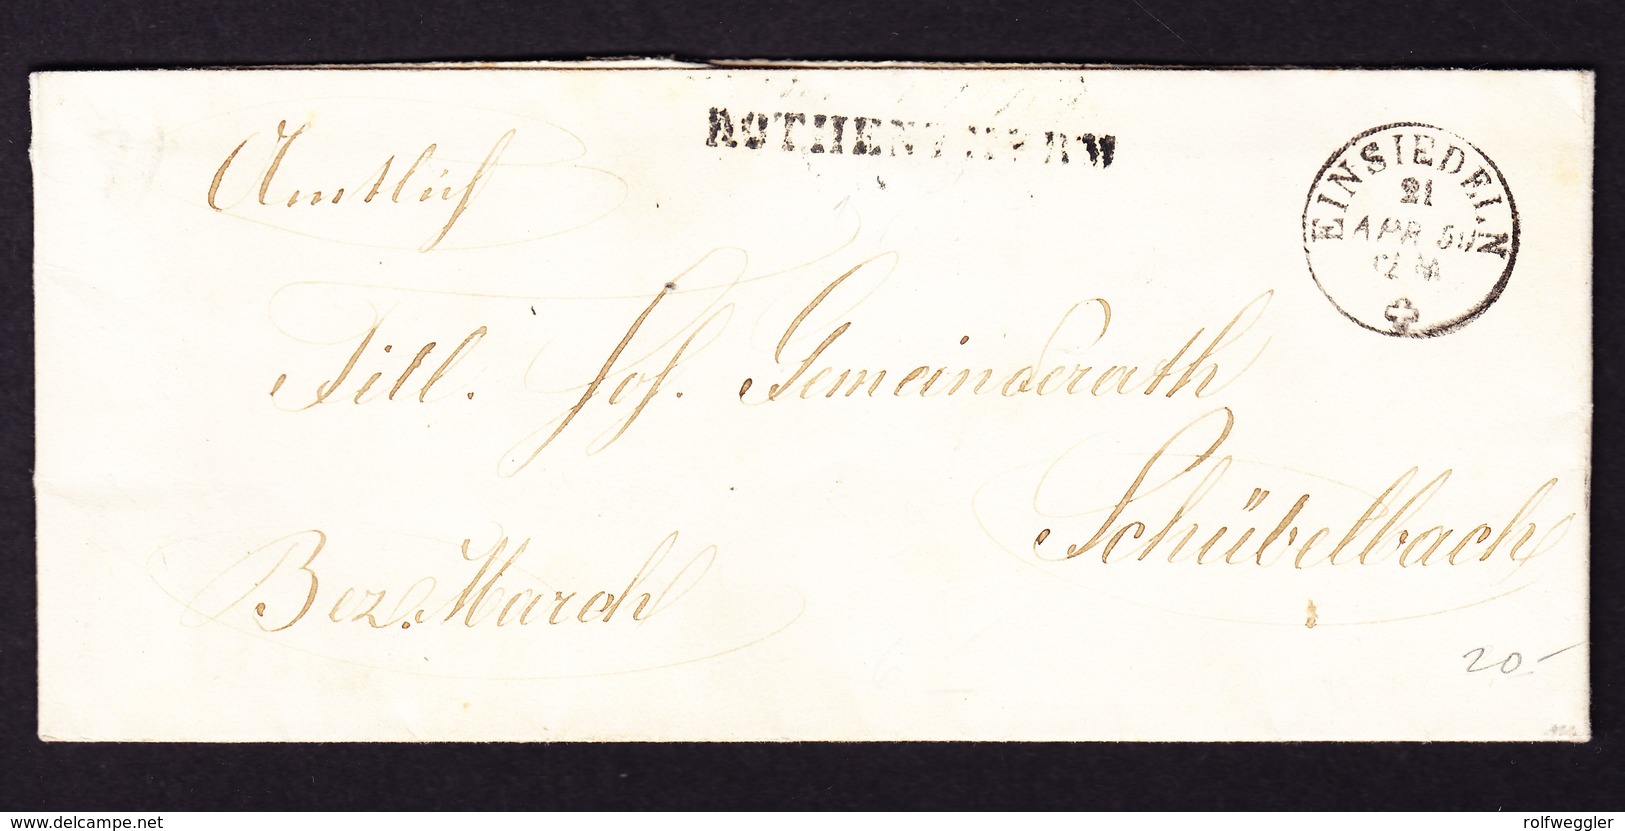 Amtlich
EINSIEDELN
21
APR
Titl.
Gemeinderath
Schübelbach
Bez. March
20-
www.delcampe.net
rolfweggler